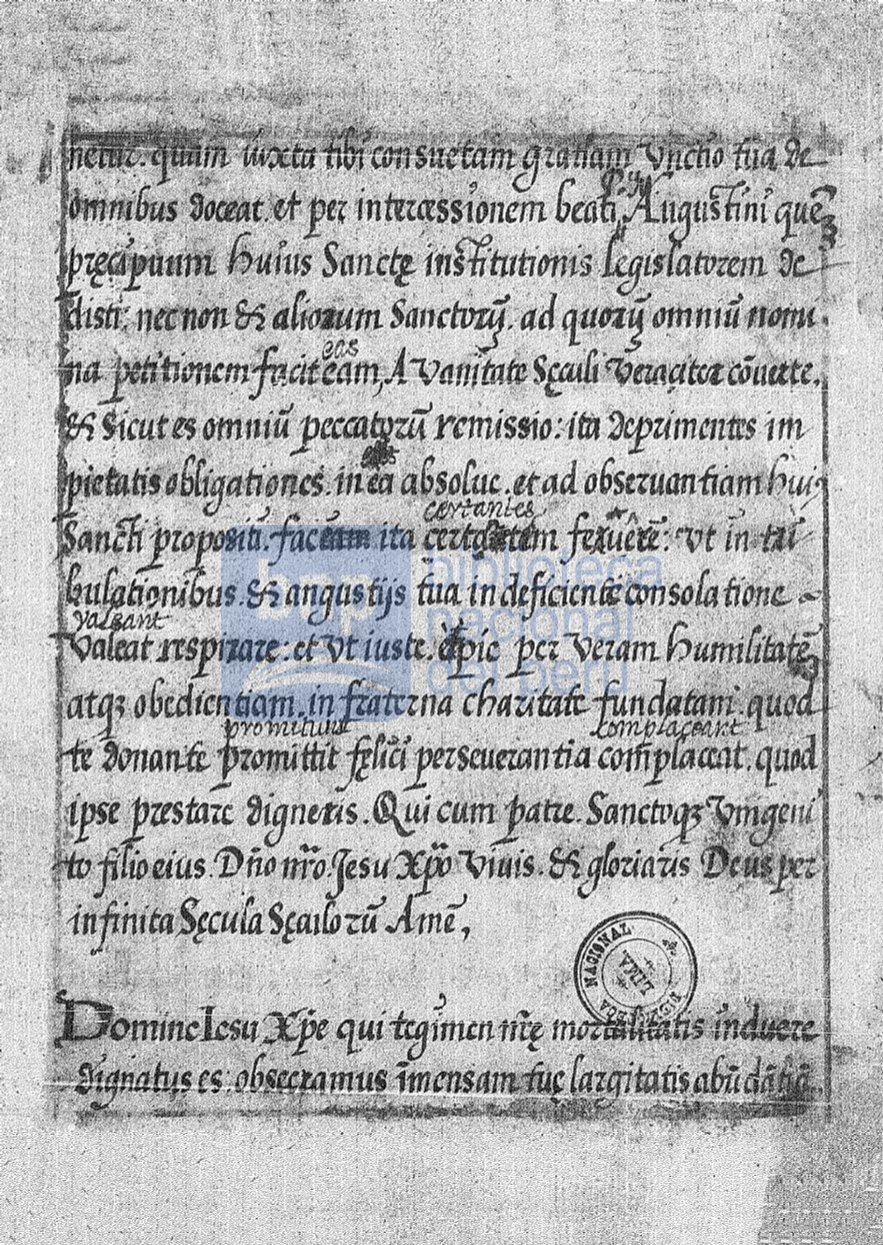 netur. quam iuxta tibi consuetam gratiam Vnctio tua de
omnibus doceat. et per intercessionem beati P. N. Augustini quē
pręcipuum Huius Sanctę institutionis legislatorem de
disti: nec non & aliorum Sanctorū. ad quorū omniū nomi
eos
na petitionem facit eam, A Vanitate Sęculi Veraciter cōuerte.
& Sicut es omniū peccatorū remissio: ita deprimentes im
eos
pietatis obligationes. in ea absolue. et ad obseruantiam Hui9
certantes
Sancti propositi. faceam ita feruere: Vt in tri
bulationibus. & angustijs tua indeficiente consolatione
valeant
Valeat respirare: et Vt iuste. & pie per Veram Humilitatē
atqȝ obedientiam. in fraterna charitate fundatam. quod
promittunt complaceant
te donante promittit fęlici perseuerantia com̄placeat. quod
ipse prestare digneris. Qui cum patre. Sanctoqȝ Vnigeni
to filio eius. Dn̄o nr̄o. Jesu Xp̄o Viuis. & gloriaris Deus per
infinita Sęcula Sęculorū Amē,
BIBLIOTECA NACIONAL
LIMA
Domine Iesu Xp̄e qui tegimen nr̄ę mortalitatis induere
dignatus es: obsecramus īmensam tuę largitatis abūdātiā.
bnp biblioteca
nacional
del perú